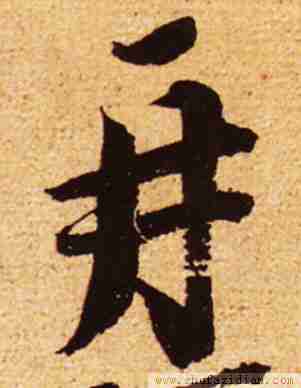 再
www.shufazidian.com